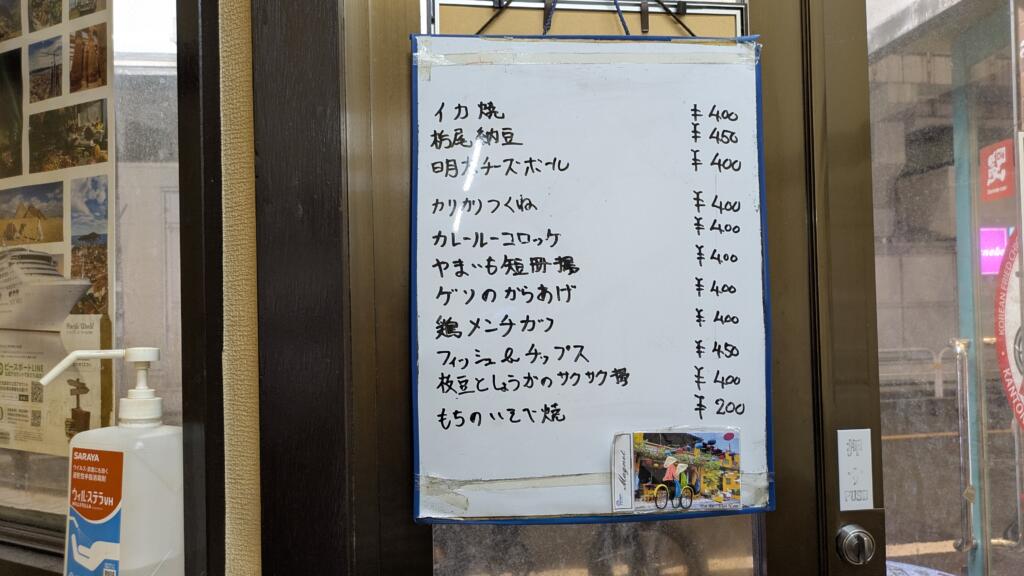 イカ焼 ¥400
栃尾納豆 ¥450
明太チーズボール ¥400
カリカリつくね ¥400
カレールーコロッケ ¥400
やまいも短冊揚 ¥400
ゲソのからあげ ¥400
鶏メンチカツ ¥400
フィッシュ&チップス ¥450
枝豆としょうがのサクサク揚 ¥400
もちのいそべ焼 ¥200
SARAYA
ウィル・ステラVH
Pacific World
ピースボートLINE
PUSH
KOREAN FRIED